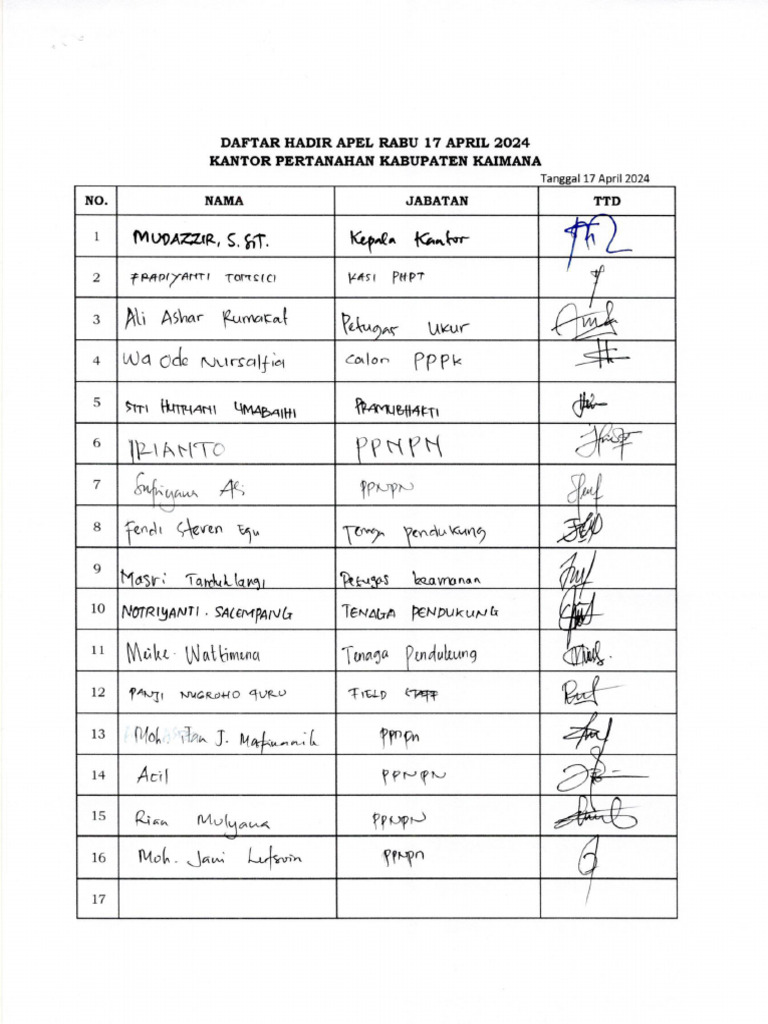 DAFTAR HADIR APEL RABU 17 APRIL 2024
KANTOR PERTANAHAN KABUPATEN KAIMANA
Tanggal 17 April 2024
NO. NAMA JABATAN TTD
1 MUDAZZIR, S.SiT. Kepala Kantor
2 FRADIYANTI TOMSICI KASI PHPT
3 Ali Ashar Rumakat Petugas Ukur
4 Wa Ode Nursalfia Calon PPPK
5 SITI UMABAIHI PRAMUBHAKTI
6 IRIANTO PPNPN
7 Supiyana PPNPN
8 Fendi Steven Egu Tenaga pendukung
9 Masri Tanduklangi Petugas keamanan
10 NOTRIYANTI. SALEMPANG TENAGA PENDUKUNG
11 Meike. Wattimena Tenaga Pendukung
12 PANJI NUGROHO GURU FIELD STAFF
13 Moh J. PPNPN
14 Acil PPNPN
15 Rian Mulyana PPNPN
16 Moh. Jani PPNPN
17